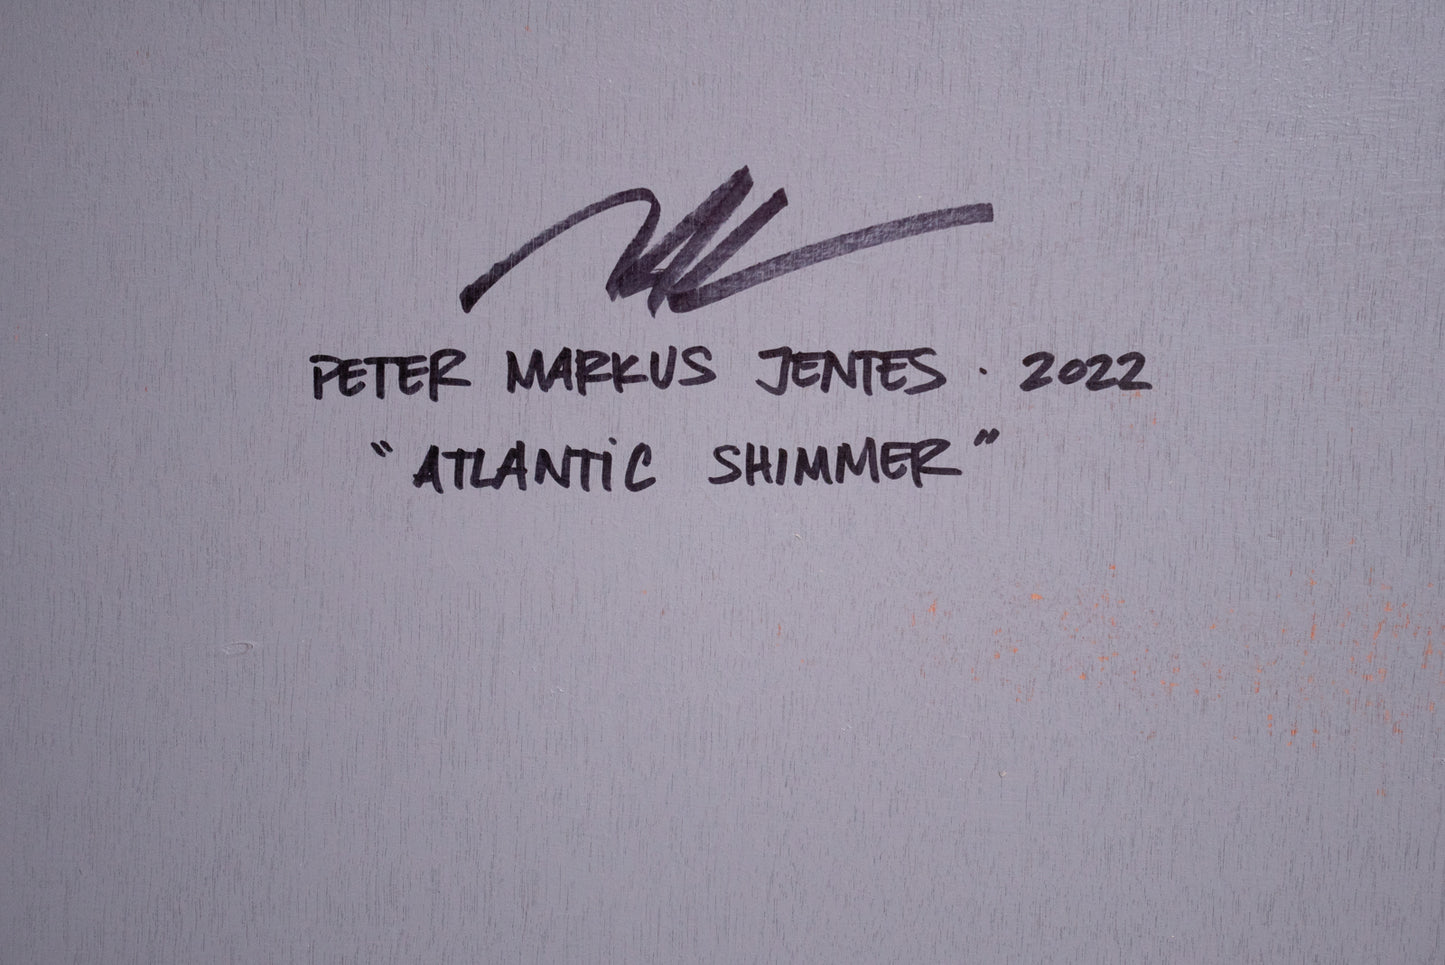 PETER MARKUS JENTES · 2022
"ATLANTiC SHIMMER"